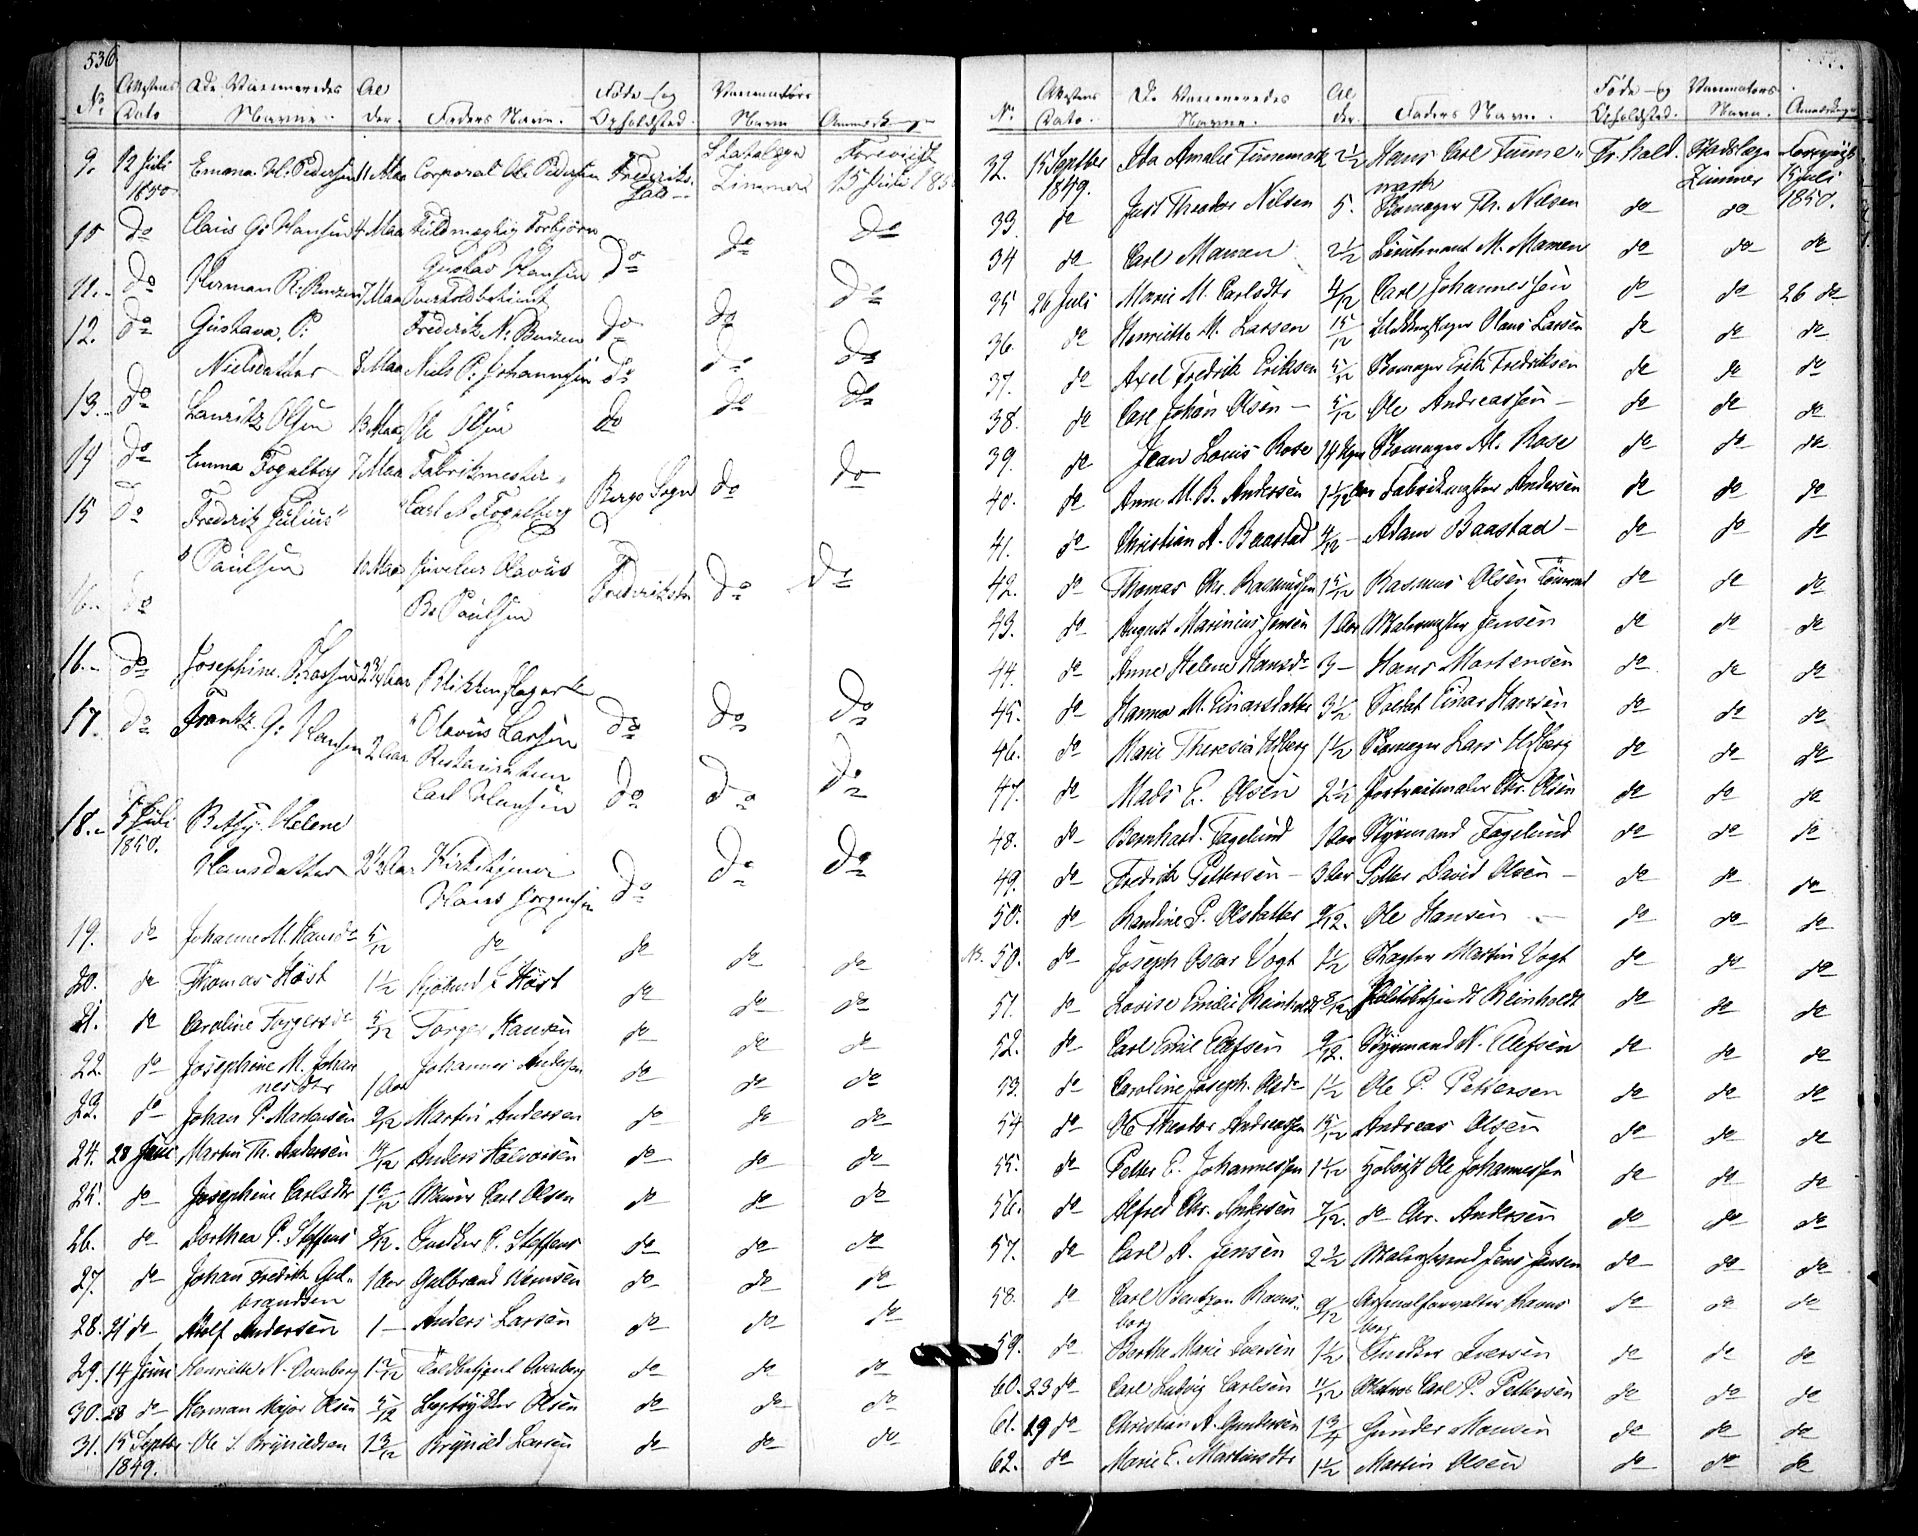 536
No Attestens Dato De Vaccineredes Navne. Al der. Faders Navn. Føde- og Opholdsted. Vaccinators Navn Anmærkning
9. 12 Juli 1850. Emma H. Pedersen 11 Maa Corporal Ole Pedersen Frederiks- Zimmer 12 Juli 185
10 do Claus G. Hansen 4 Maa Fuldmægtig Torbjørn Gustav Hansen do do do
11. do Herman R. 7 Maa Fredrik N. do do do
12. do Gustava P. Nielsdatter 8 Maa Niels P. Johannesen do do do
13. do Lauritz Olsen 13 Maa Ole Olsen do do do
14 do Emma Fogelberg 7 Maa Fabrikmester Carl Fogelberg Borge Sogn do do
15 do Fredrik Julius Paulsen 10 Maa Olavus B. Paulsen Fredrikst. do do
16. do
16. do Josephine Larsen 2¾ Aar Blikkenslager Olavus Larsen do do do
17. do Frantz G. Hansen 2 Aar Carl Hansen do do do
18. 5 Juli 1850. Betzy Helene Hansdatter 2½ Aar Hans Jørgensen do do do
19. do Johanne M. Hansdr 5/12 do do do do
20. do Thomas Høst 1½ Kjøbmd Høst do do do
21. do Caroline Torgersdr 5/12 Torger Hansen do do do
22. do Josephine M. Johan nesdtr 1 Aar Johannes Andersen do do do
23. do Johan P. Martensen 9/12 Martin Andersen do do do
24. 28 Juni Martin Th. Andersen 11/12 Anders Halvorsen do do do
25. do Josephine Carlsdtr Carl Olsen do do do
26. do Dorthea P. Steffens 8/12. P. Steffens do do do
27. do Johan Fredrik Gul- brandsen 1 Aar Gulbrand do do do
28. 21 do Adolf Andersen 1 – Anders Larsen do do do
29. 14 Juni Henriette N. do do do
30. 28 do Herman Major Olsen 5/12 Olsen do do do
31. 15 Septbr 1849. Ole S. Brynildsen Brynild Larsen do do do
No. Attestens Dato. De Vaccineredes Navne. Al der. Faders Navn. Føde- og Opholdsted. Vaccinators Navn. Anmærkning
32. 15 Septber 1849. Ida Amalie 2½ Hans Carl Fr.hald. Zimmer 15 Juli 1850.
33. do Just Theodor Nilsen 5. Skomager Th. Nilsen do do
34 do Carl Mamen 2½ Lieutnant M. Mamen do do do
35 26 Juli Marie M. Carlsdtr 4/12 Carl Johannessen do do 26 do
36. do Henriette M. Larsen 15/12 Hans Larsen do do do
37. do Axel Fredrik Eriksen 5/12 Skomager Erik Fredriksen do do do
38. do Carl Johan Olsen – 5/12 Ole Andreassen – do do do
39. do Jean Louis Rose Skomager Al. Rose do do do
40. do Anne M. B. Andersen Fabrikmester Andersen do do do
41. do Christian A. Baastad 4/12 – Adam Baastad – do do do
42. do Thomas Chr. Rasmussen Rasmus Olsen do do do
43. do August Marinius Jensen 1 Aar Malermester Jensen do do do
44. do Anne Helene Hansdr 3 – Hans Mortensen do do do
45. do Hanna M. Einarsdatter 3½ Soldat Einar Hansen do do do
46. do Marie Theresia Udberg 1½ Skomager Lars Udberg do do do
47. do Mads E. Olsen 2½ Portraitmaler Chr. Olsen do do do
48. do Bernhard Fagelund 1 Aar Styrmand Fagelund do do do
49. do Fredrik Pettersen – 3 Aar David Olsen – do do do
50. do Olsdatter 9/12. Ole Hansen do do do
NB. 50. do Joseph Oscar Vogt 1½ Martin Vogt do do do
51. do Lovise Emilie Reinholdt 8/12 Reinholdt do do do
52. do Carl Emil Olefsen 9/12. Styrmand N. Olefsen do do do
53. do Caroline Joseph. Olsdr 1½ Ole P. Pettersen do do do
54 do Ole Theodor Andreassen Andreas Olsen do do do
55. do Petter E. Johannessen Ole Johannessen do do do
56. do Alfred Chr. Andersen 7/12. do Chr. Andersen do do do
57. do Carl A. Jensen 2½ Jens Jensen do do do
58. do Carl Bentzon 9/12 Arsenalforvalter do do do
59. do Berthe Marie Iversen 1½ Iversen do do do
60. 23 do Carl Ludvig Carlsen 11/12 Carl P. Pettersen do do do
61. 19 do Christian A. Gundersen 1¾ Gunder Monsen do do do
62. do Marie E. Martinsdtr 1½ Martin Olsen do do do